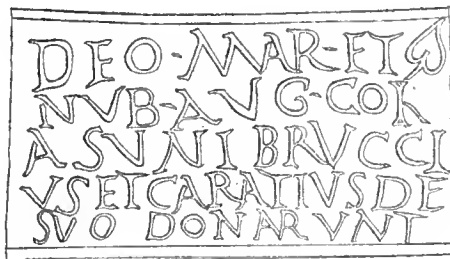 DEO-MAR-ET
NVB-AVG-COR
ASVNIBRVCCI
VSETCARATIVSDE
SVO DONARVNT